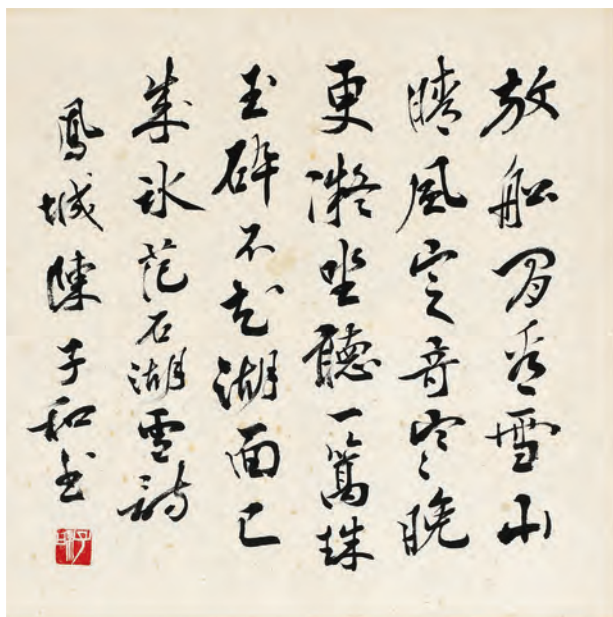 放船閒看雪山
晴風定奇寒晚
更凝坐聽一篙珠
玉碎不知湖面已
成冰范石湖雪詩
鳳城陳子和書
子和